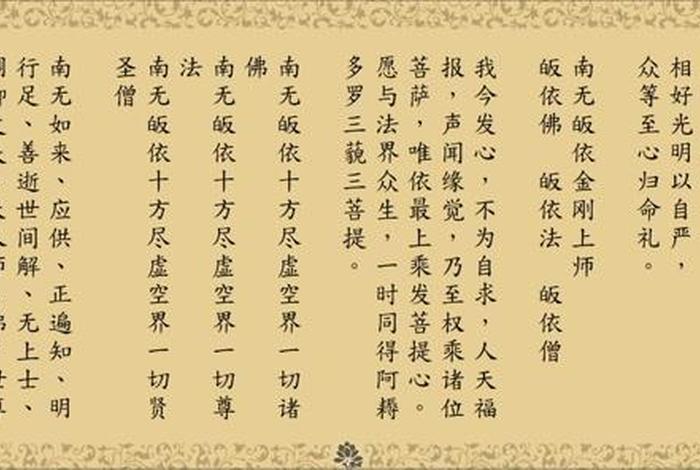 相好光明以自严，
众等至心归命礼。
南无皈依金刚上师
皈依佛　皈依法　皈依僧
我今发心，不为自求，人天福
报，声闻缘觉，乃至权乘诸位
菩萨，唯依最上乘发菩提心。
愿与法界众生，一时同得阿耨
多罗三藐三菩提。
南无皈依十方尽虚空界一切诸
佛
南无皈依十方尽虚空界一切尊
法
南无皈依十方尽虚空界一切贤
圣僧
南无如来、应供、正遍知、明
行足、善逝世间解、无上士、